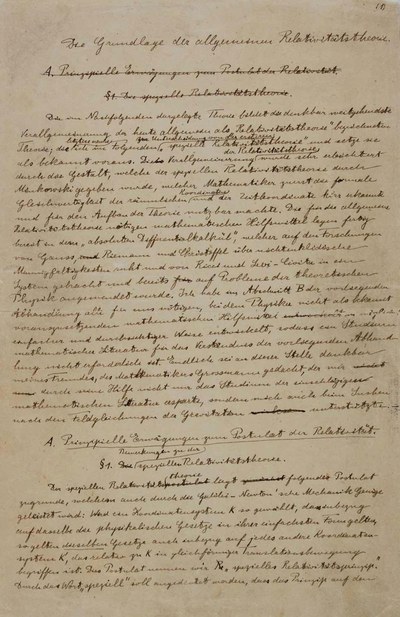 Die Grundlage der allgemeinen Relativitätstheorie.
A. Prinzipielle Erwägungen zum Postulat der Relativität.
§1. Die spezielle Relativitätstheorie.
Die im Nachfolgenden dargelegte Theorie bildet die denkbar weitgehendste
Verallgemeinerung der heute allgemein als "Relativitätstheorie" bezeichneten
Theorie; die letztere nenne ich im folgenden zur Unterscheidung von der ersteren "spezielle Relativitätstheorie" und setze sie
als bekannt voraus. Die Verallgemeinerung der Relativitätstheorie wurde sehr erleichtert
durch die Gestalt, welche der speziellen Relativitätstheorie durch
Minkowski gegeben wurde, welcher Mathematiker zuerst die formale
Gleichwertigkeit der räumlichen Koordinaten und der Zeitkoordinate klar erkannte
und für den Aufbau der Theorie nutzbar machte. Die für die allgemeine
Relativitätstheorie nötigen mathematischen Hilfsmittel lagen fertig
bereit in dem "absoluten Differentialkalkül", welcher auf den Forschungen
von Gauss und Riemann und Christoffel über nichteuklidische
Mannigfaltigkeiten ruht und von Ricci und Levi-Civita in ein
System gebracht und bereits auf Probleme der theoretischen
Physik angewendet wurde. Ich habe im Abschnitt B der vorliegenden
Abhandlung alle für uns nötigen, bei dem Physiker nicht als bekannt
vorauszusetzenden mathematischen Hilfsmittel in möglichst
einfacher und durchsichtiger Weise entwickelt, sodass ein Studium
mathematischer Literatur für das Verständnis der vorliegenden Abhand-
lung nicht erforderlich ist. Endlich sei an dieser Stelle dankbar
meines Freundes, des Mathematikers Grossmann gedacht, der mir
durch seine Hilfe nicht nur das Studium der einschlägigen
mathematischen Literatur ersparte, sondern mich auch beim Suchen
nach den Feldgleichungen der Gravitation unterstützte.
A. Prinzipielle Erwägungen zum Postulat der Relativität.
§1. Bemerkungen zu der speziellen Relativitätstheorie.
Der speziellen Relativitätstheorie liegt folgendes Postulat
zugrunde, welchem auch durch die Galilei-Newton'sche Mechanik Genüge
geleistet wird: Wird ein Koordinatensystem K so gewählt, dass inbezug
auf dasselbe die physikalischen Gesetze in ihrer einfachsten Form gelten,
so gelten dieselben Gesetze auch inbezug auf jedes andere Koordinaten-
system K', das relativ zu K in gleichförmiger Translationsbewegung
begriffen ist. Dies Postulat nennen wir "spezielles Relativitätsprinzip".
Durch das Wort "speziell" soll angedeutet werden, dass das Prinzip auf den